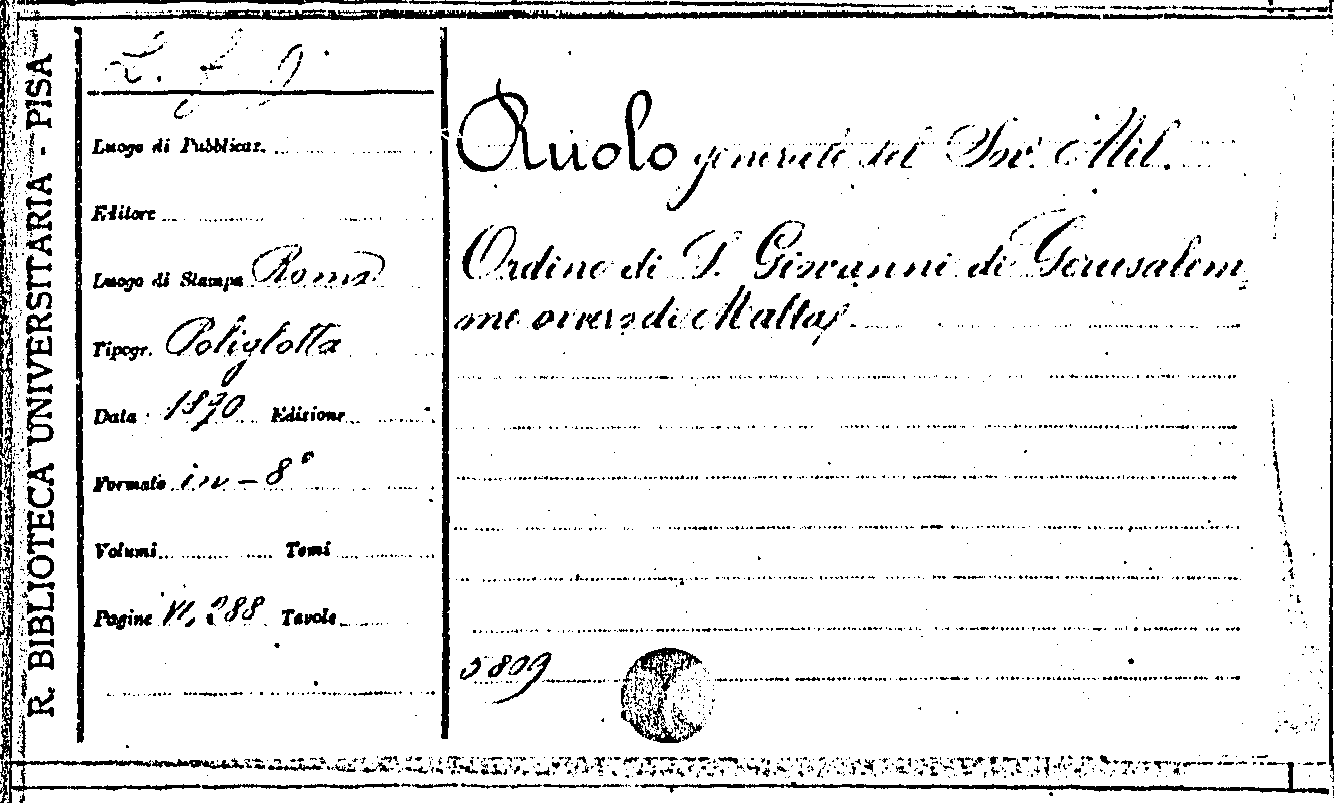 R. BIBLIOTECA UNIVERSITARIA - PISA
L. f. g.
Luogo di Pubblicaz.
Editore
Luogo di Stampa Roma
Tipogr. Poliglotta
Data 1890 Edizione
Formato in-8°
Volumi Tomi
Pagine VI, 288 Tavole
Ruolo generale del Sov. Mil.
Ordine di S. Giovanni di Gerusalem-
me ovvero di Malta
5809